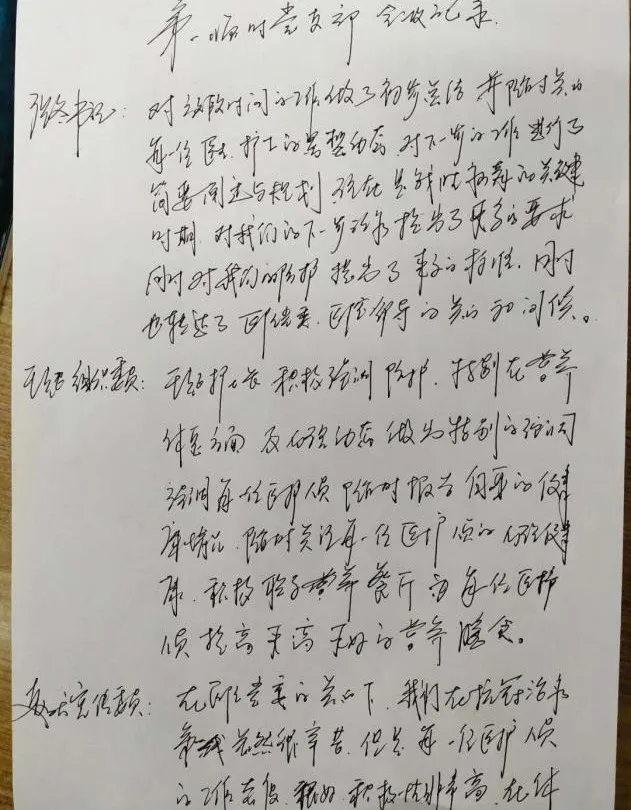 第一临时党支部 会议记录
书记: 对这段时间的工作做了初步总结 并随时关心
每一位医生、护士的思想动态 对下一步的工作进行了
简要阐述与规划 现在是战胜病毒的关键
时期 对我们的下一步 提出了 的要求
同时对我们的防护 提出了 的 性. 同时
也转达了医院 领导的关心和问候。
组织委员: 护士长 积极强调防护. 特别在营养
体重方面 及心理动态做出特别的强调
强调每一位医护人员随时报告自己的健
康情况. 随时关注每一位医护人员的心理健
康. 积极联系营养餐厅为每一位医护
人员提高更高更好的营养膳食。
宣传委员: 在医院党委的关心下. 我们在抗 治
虽然很辛苦. 但是每一位医护人员
的工作态度 积极性非常高. 在体